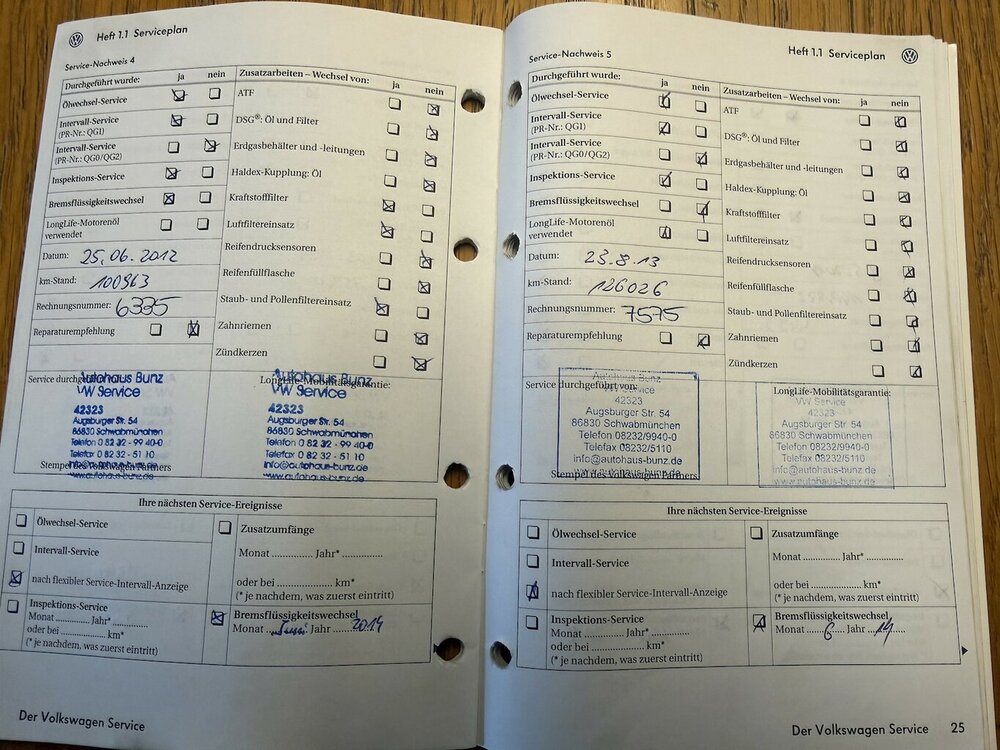 Heft 1.1 Serviceplan
Service-Nachweis 4
Durchgeführt wurde: ja nein
Ölwechsel-Service
Intervall-Service
(PR-Nr.: QG1)
Intervall-Service
(PR-Nr.: QG0/QG2)
Inspektions-Service
Bremsflüssigkeitswechsel
LongLife-Motorenöl
verwendet
Datum: 25.06.2012
km-Stand: 100963
Rechnungsnummer: 6335
Reparaturempfehlung
Zusatzarbeiten – Wechsel von: ja nein
ATF
DSG®: Öl und Filter
Erdgasbehälter und -leitungen
Haldex-Kupplung: Öl
Kraftstofffilter
Luftfiltereinsatz
Reifendrucksensoren
Reifenfüllflasche
Staub- und Pollenfiltereinsatz
Zahnriemen
Zündkerzen
Service durchgeführt von:
Autohaus Bunz
VW Service
42323
Augsburger Str. 54
86830 Schwabmünchen
Telefon 0 82 32 - 99 40-0
Telefax 0 82 32 - 51 10
info@autohaus-bunz.de
www.autohaus-bunz.de
Stempel des Volkswagen Partners
LongLife-Mobilitätsgarantie:
Autohaus Bunz
VW Service
42323
Augsburger Str. 54
86830 Schwabmünchen
Telefon 0 82 32 - 99 40-0
Telefax 0 82 32 - 51 10
info@autohaus-bunz.de
www.autohaus-bunz.de
Ihre nächsten Service-Ereignisse
Ölwechsel-Service
Intervall-Service
nach flexibler Service-Intervall-Anzeige
Inspektions-Service
Monat ............ Jahr* ............
oder bei ................ km*
(* je nachdem, was zuerst eintritt)
Zusatzumfänge
Monat ............ Jahr* ............
oder bei ................ km*
(* je nachdem, was zuerst eintritt)
Bremsflüssigkeitswechsel
Monat Juni Jahr 2014
Der Volkswagen Service
Heft 1.1 Serviceplan
Service-Nachweis 5
Durchgeführt wurde: ja nein
Ölwechsel-Service
Intervall-Service
(PR-Nr.: QG1)
Intervall-Service
(PR-Nr.: QG0/QG2)
Inspektions-Service
Bremsflüssigkeitswechsel
LongLife-Motorenöl
verwendet
Datum: 23.8.13
km-Stand: 126026
Rechnungsnummer: 7575
Reparaturempfehlung
Zusatzarbeiten – Wechsel von: ja nein
ATF
DSG®: Öl und Filter
Erdgasbehälter und -leitungen
Haldex-Kupplung: Öl
Kraftstofffilter
Luftfiltereinsatz
Reifendrucksensoren
Reifenfüllflasche
Staub- und Pollenfiltereinsatz
Zahnriemen
Zündkerzen
Service durchgeführt von:
Autohaus Bunz
VW Service
42323
Augsburger Str. 54
86830 Schwabmünchen
Telefon 08232/9940-0
Telefax 08232/5110
info@autohaus-bunz.de
www.autohaus-bunz.de
Stempel des Volkswagen Partners
LongLife-Mobilitätsgarantie:
VW Service
42323
Augsburger Str. 54
86830 Schwabmünchen
Telefon 08232/9940-0
Telefax 08232/5110
info@autohaus-bunz.de
www.autohaus-bunz.de
Ihre nächsten Service-Ereignisse
Ölwechsel-Service
Intervall-Service
nach flexibler Service-Intervall-Anzeige
Inspektions-Service
Monat ............ Jahr* ............
oder bei ................ km*
(* je nachdem, was zuerst eintritt)
Zusatzumfänge
Monat ............ Jahr* ............
oder bei ................ km*
(* je nachdem, was zuerst eintritt)
Bremsflüssigkeitswechsel
Monat 6 Jahr 14
Der Volkswagen Service 25